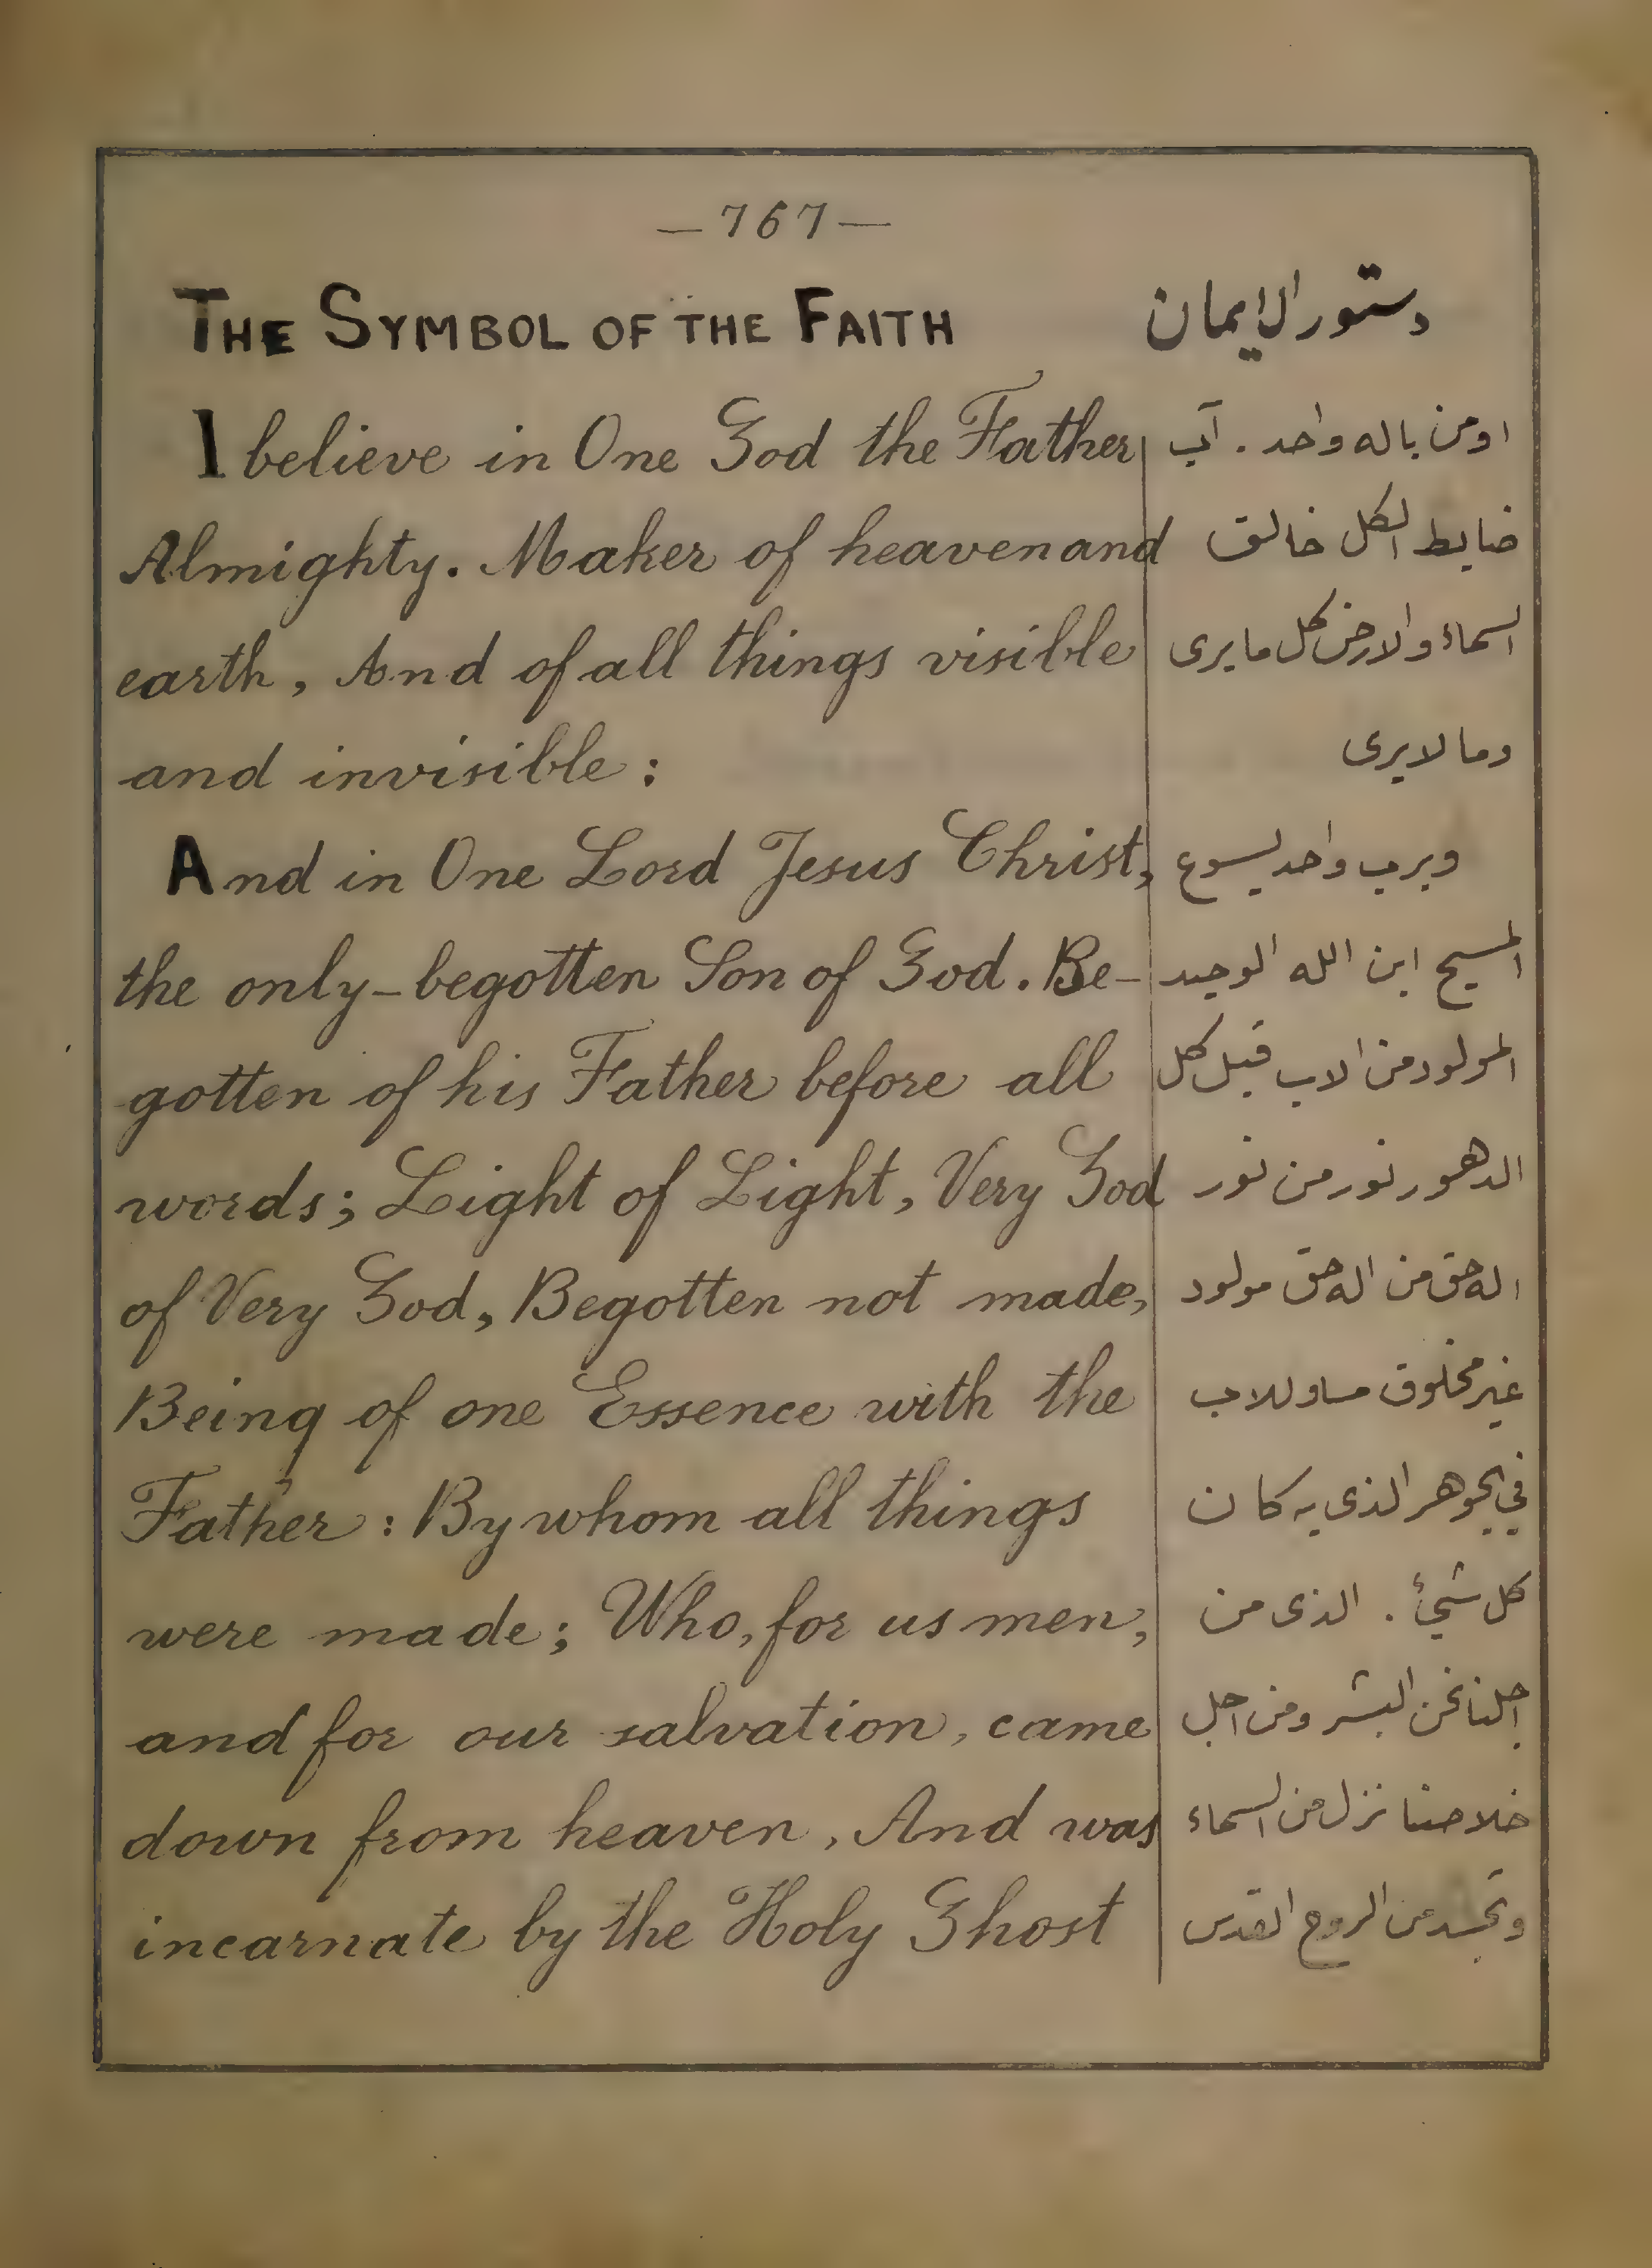 —767—
THE SYMBOL OF THE FAITH
دستور الايمان
I believe in One God the Father
Almighty. Maker of heaven and
earth, And of all things visible
and invisible:
And in One Lord Jesus Christ,
the only-begotten Son of God. Be-
gotten of his Father before all
words; Light of Light, Very God
of Very God, Begotten not made,
Being of one Essence with the
Father: By whom all things
were made; Who, for us men,
and for our salvation, came
down from heaven, And was
incarnate by the Holy Ghost
اومن باله واحد. آب
ضابط الكل خالق
السماء والارض كل ما يرى
وما لا يرى
وبرب واحد يسوع
المسيح ابن الله الوحيد
المولود من الاب قبل كل
الدهور نور من نور
اله حق من اله حق مولود
غير مخلوق مساو للاب
في الجوهر الذى به كان
كل شيئ. الذى من
اجلنا نحن البشر ومن اجل
خلاصنا نزل من السماء
وتجسد من الروح القدس